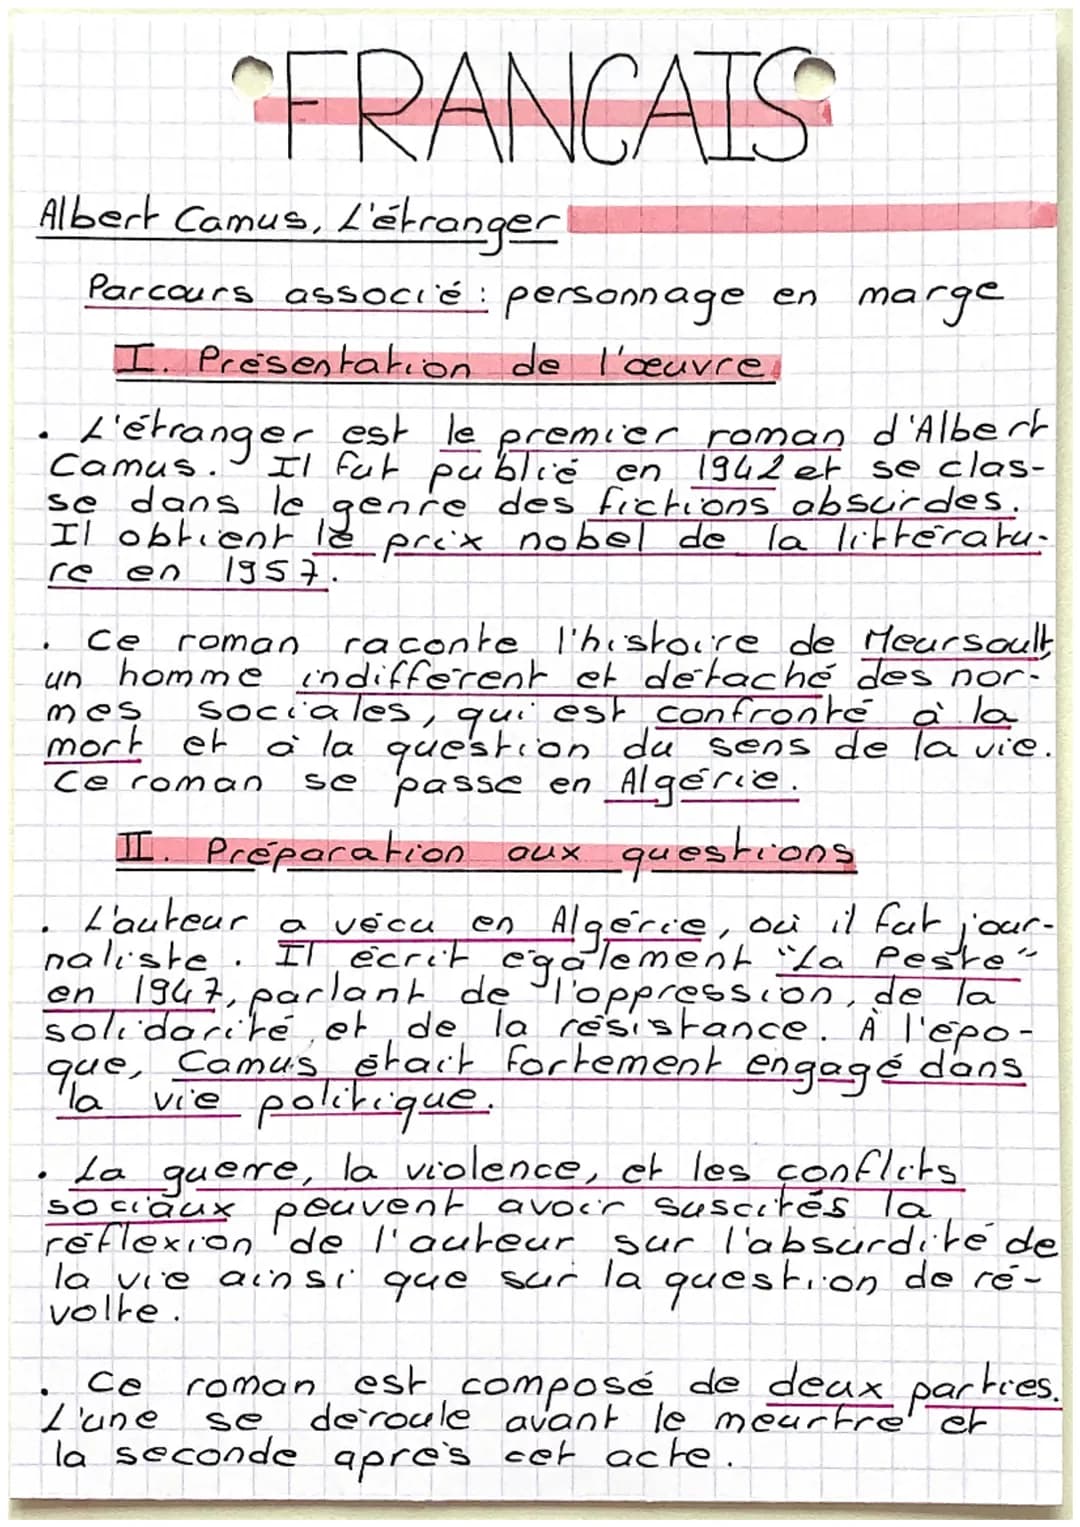 FRANCAIS
Albert Camus, L'étranger
Parcours associé : personnage en marge
I. Présentation de l'œuvre
. L'étranger est le premier roman d'Albert
Camus. Il fut publié en 1942 et se clas-
se dans le genre des fictions absurdes.
Il obtient le prix nobel de la littératu-
re en 1957.
. Ce roman raconte l'histoire de Meursault,
un homme indifférent et détaché des nor-
mes sociales, qui est confronté à la
mort et à la question du sens de la vie.
Ce roman se passe en Algérie.
II. Préparation aux questions
. L'auteur a vécu en Algérie, où il fut jour-
naliste. Il écrit également "La Peste"
en 1947, parlant de l'oppression, de la
solidarité et de la résistance. À l'épo-
que, Camus était fortement engagé dans
la vie politique.
. La guerre, la violence, et les conflits
sociaux peuvent avoir suscités la
réflexion de l'auteur sur l'absurdité de
la vie ainsi que sur la question de ré-
volte.
. Ce roman est composé de deux parties.
L'une se déroule avant le meurtre et
la seconde après cet acte.